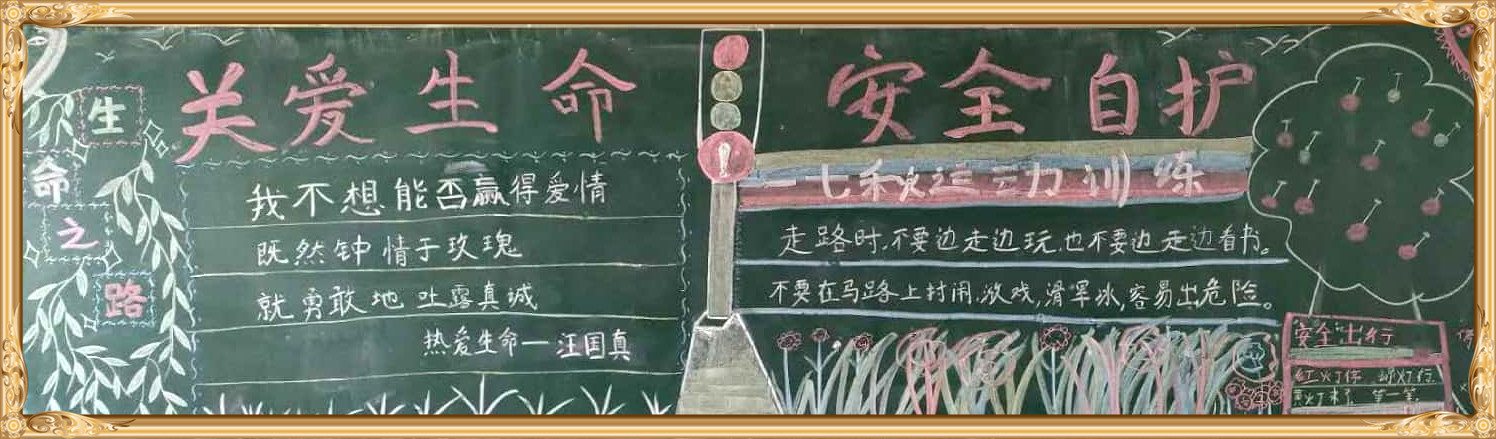 生命之路
关爱生命
我不想能否赢得爱情
既然钟情于玫瑰
就勇敢地吐露真诚
热爱生命—汪国真
!
安全自护
走路时,不要边走边玩,也不要边走边看书。
不要在马路上打闹.游戏,滑旱冰,容易出危险。
安全出行
红灯停 绿灯行
黄灯来了 等一等